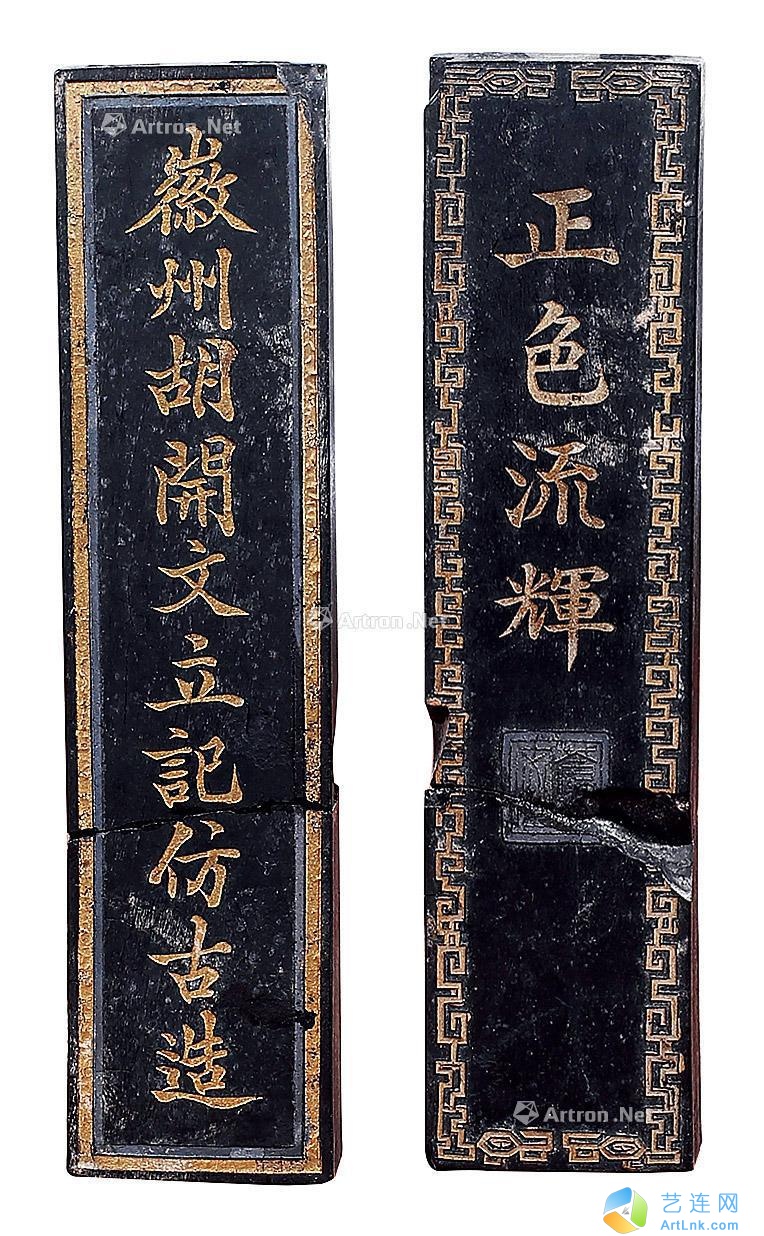 徽州胡開文立記仿古造
正色流輝
Artron.Net
Artron.Net
Artron.Net
艺连网
ArtLnk.com